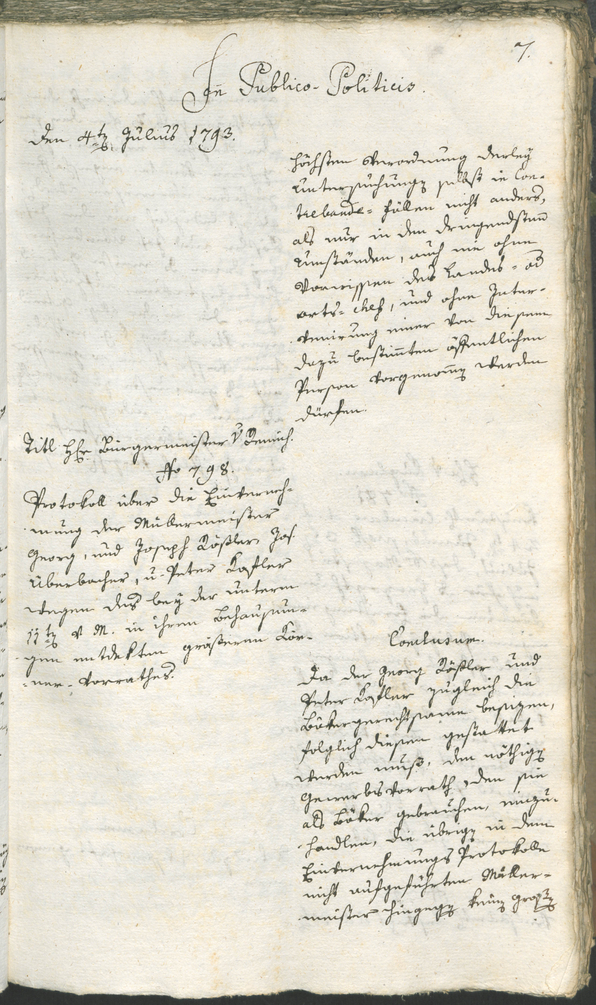 7.
In Publico-Politicis.
Den 4tn Julius 1793.
höchsten Verordnung derley
Untersuchungn selbst in Con-
trebande-Fällen nicht anders,
als nur in den dringendsten
Umständen, auch nie ohne
Vorwissen des Landes- od
orts-chef, und ohne Inter-
venirung einer von diesem
dazu bestimten öffentlichen
Person vorgenomn werden
dürfen.
Titl Hr Bürgermeister v
No 798.
Protokoll über die Einverneh-
mung der Müllermeister
Georg, und Joseph Rößler, Jos.
Überbacher, u. Peter Kofler
wegen des bey der unterm
11tn v. M. in ihren Behausun-
gen entdekten größeren Kör-
ner-Vorrathes.
Conclusum.
Da der Georg Rößler und
Peter Kofler zugleich die
Bökergerechtsame besizen,
folglich diesen gestattet
werden muß, den nöthign
Gewerbsvorrath, den sie
als Böker gebrauchen, einzu-
handlen, die übrign in dem
Einvernehmungs Protokolle
nicht aufgeführten Müller-
meister hingegn keinn großn